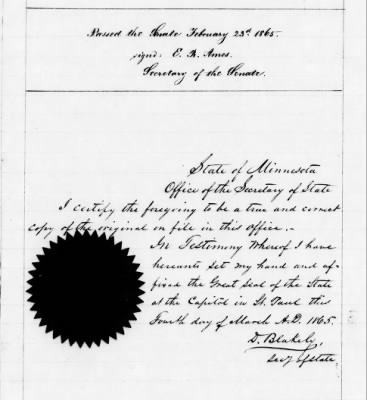 Passed the Senate February 23d 1865.
signd: E. R. Ames.
Secretary of the Senate.
State of Minnesota
Office of the Secretary of State
I certify the foregoing to be a true and correct
copy of the original on file in this office.-
In Testimony Whereof I have
hereunto set my hand and af-
fixed the Great Seal of the State
at the Capitol in St. Paul this
Fourth day of March A.D. 1865.
D. Blakely,
Secy of State.